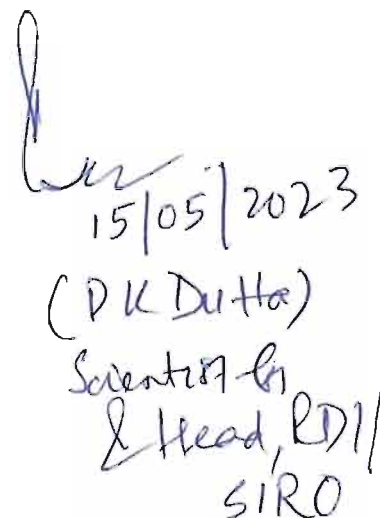 15/05/2023
(D K Dutta)
Scientist G
& Head, RDI/
SIRO